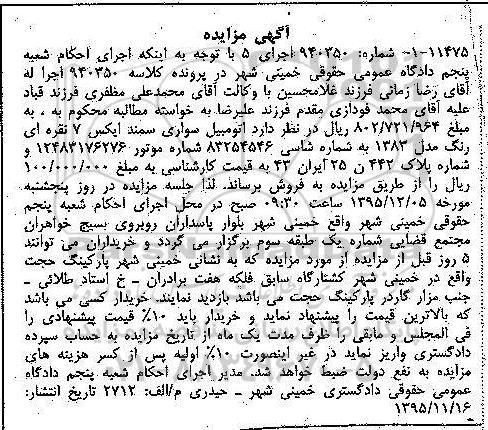 آگهی مزایده
۱۱۴۷۵-۱- شماره: ۹۴۰۳۵۰ اجرای ۵ با توجه به اینکه اجرای احکام شعبه
پنجم دادگاه عمومی حقوقی خمینی شهر در پرونده کلاسه ۹۴۰۳۵۰ اجرا له
آقای رضا زمانی فرزند غلامحسین با وکالت آقای محمدعلی مظفری فرزند قباد
علیه آقای محمد فودازی مقدم فرزند علیرضا به خواسته مطالبه محکوم به ، به
مبلغ ۸۰۲/۷۲۱/۹۶۴ ریال در نظر دارد اتومبیل سواری سمند ایکس ۷ نقره ای
رنگ مدل ۱۳۸۳ به شماره شاسی ۸۳۲۵۴۵۴۶ شماره موتور ۱۲۴۸۳۱۷۶۲۷۶ و
شماره پلاک ۴۴۲ ن ۲۵ ایران ۴۳ به قیمت کارشناسی به مبلغ ۱۰۰/۰۰۰/۰۰۰
ریال را از طریق مزایده به فروش برساند. لذا جلسه مزایده در روز پنجشنبه
مورخه ۱۳۹۵/۱۲/۰۵ ساعت ۰۹:۳۰ صبح در محل اجرای احکام شعبه پنجم
حقوقی خمینی شهر واقع خمینی شهر بلوار پاسداران روبروی بسیج خواهران
مجتمع قضایی شماره یک طبقه سوم برگزار می گردد و خریداران می توانند
۵ روز قبل از مزایده از مورد مزایده که به نشانی خمینی شهر پارکینگ حجت
واقع در خمینی شهر کشتارگاه سابق فلکه هفت برادران ـ خ استاد طلائی ـ
جنب مزار گاردر پارکینگ حجت می باشد بازدید نمایند. خریدار کسی می باشد
که بالاترین قیمت را پیشنهاد نماید و خریدار باید ۱۰٪ قیمت پیشنهادی را
فی المجلس و مابقی را ظرف مدت یک ماه از تاریخ مزایده به حساب سپرده
دادگستری واریز نماید در غیر اینصورت ۱۰٪ اولیه پس از کسر هزینه های
مزایده به نفع دولت ضبط خواهد شد. مدیر اجرای احکام شعبه پنجم دادگاه
عمومی حقوقی دادگستری خمینی شهر ـ حیدری م/الف: ۲۷۱۲ تاریخ انتشار:
۱۳۹۵/۱۱/۱۶